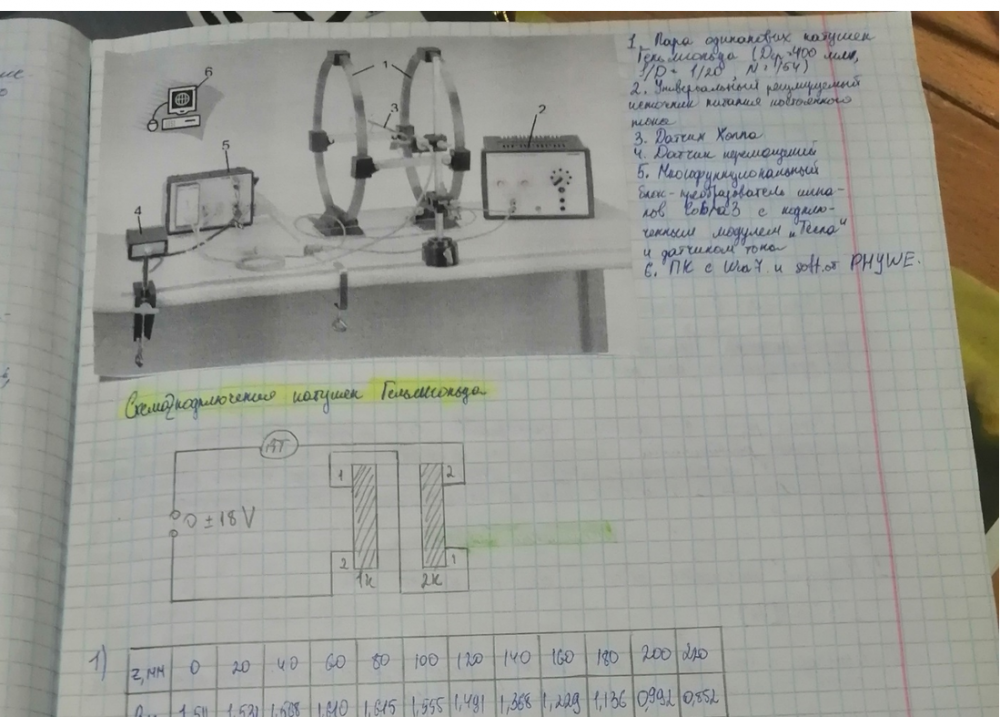 1. Пара одинаковых катушек
Гельмгольца (Dср=400 мм,
l/D = 1/20, N=154)
2. Универсальный регулируемый
источник питания постоянного
тока
3. Датчик Холла
4. Датчик перемещений
5. Многофункциональный
блок-преобразователь сигна-
лов Cobra3 с подклю-
ченным модулем „Тесла"
и датчиком тока
6. ПК с Win7 и soft. от PHYWE.
6
1
3
2
5
4
Схема подключения катушек Гельмгольца
АТ
1
2
0 ± 18 V
2
1
1к
2к
1)
z, мм 0 20 40 60 80 100 120 140 160 180 200 220
1,511 1,531 1,568 1,610 1,615 1,555 1,491 1,368 1,229 1,136 0,992 0,852